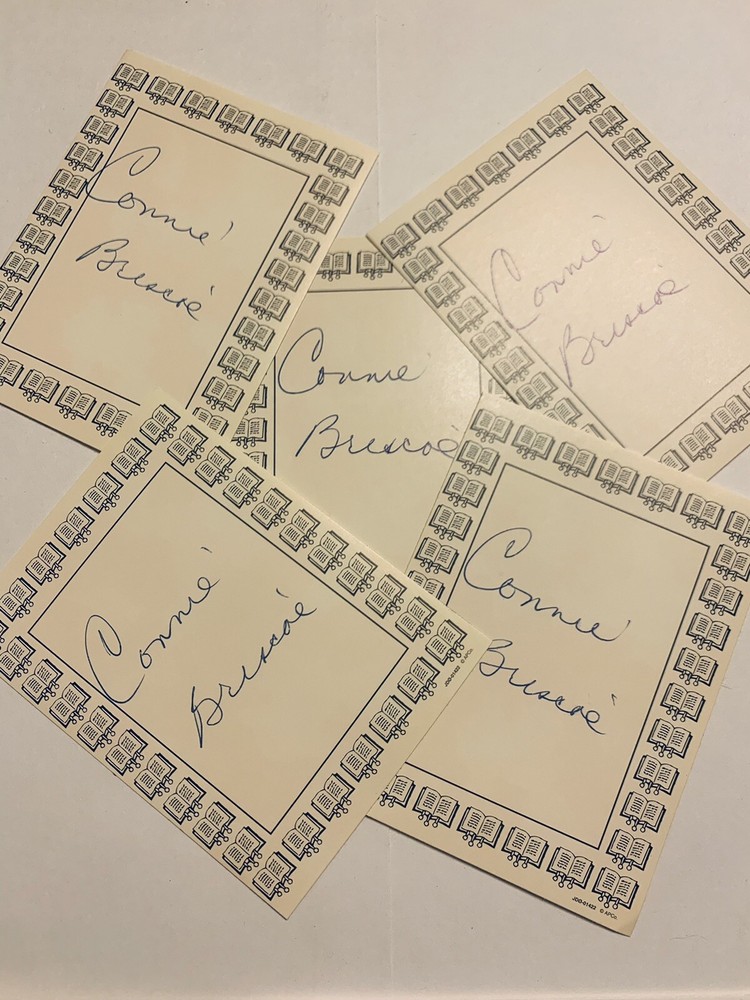 Connie
Briscoe
Connie
Briscoe
Connie
Briscoe
Connie
Briscoe
JDD-01422 © APCo.
Connie
Briscoe
JDD-01422 © APCo.